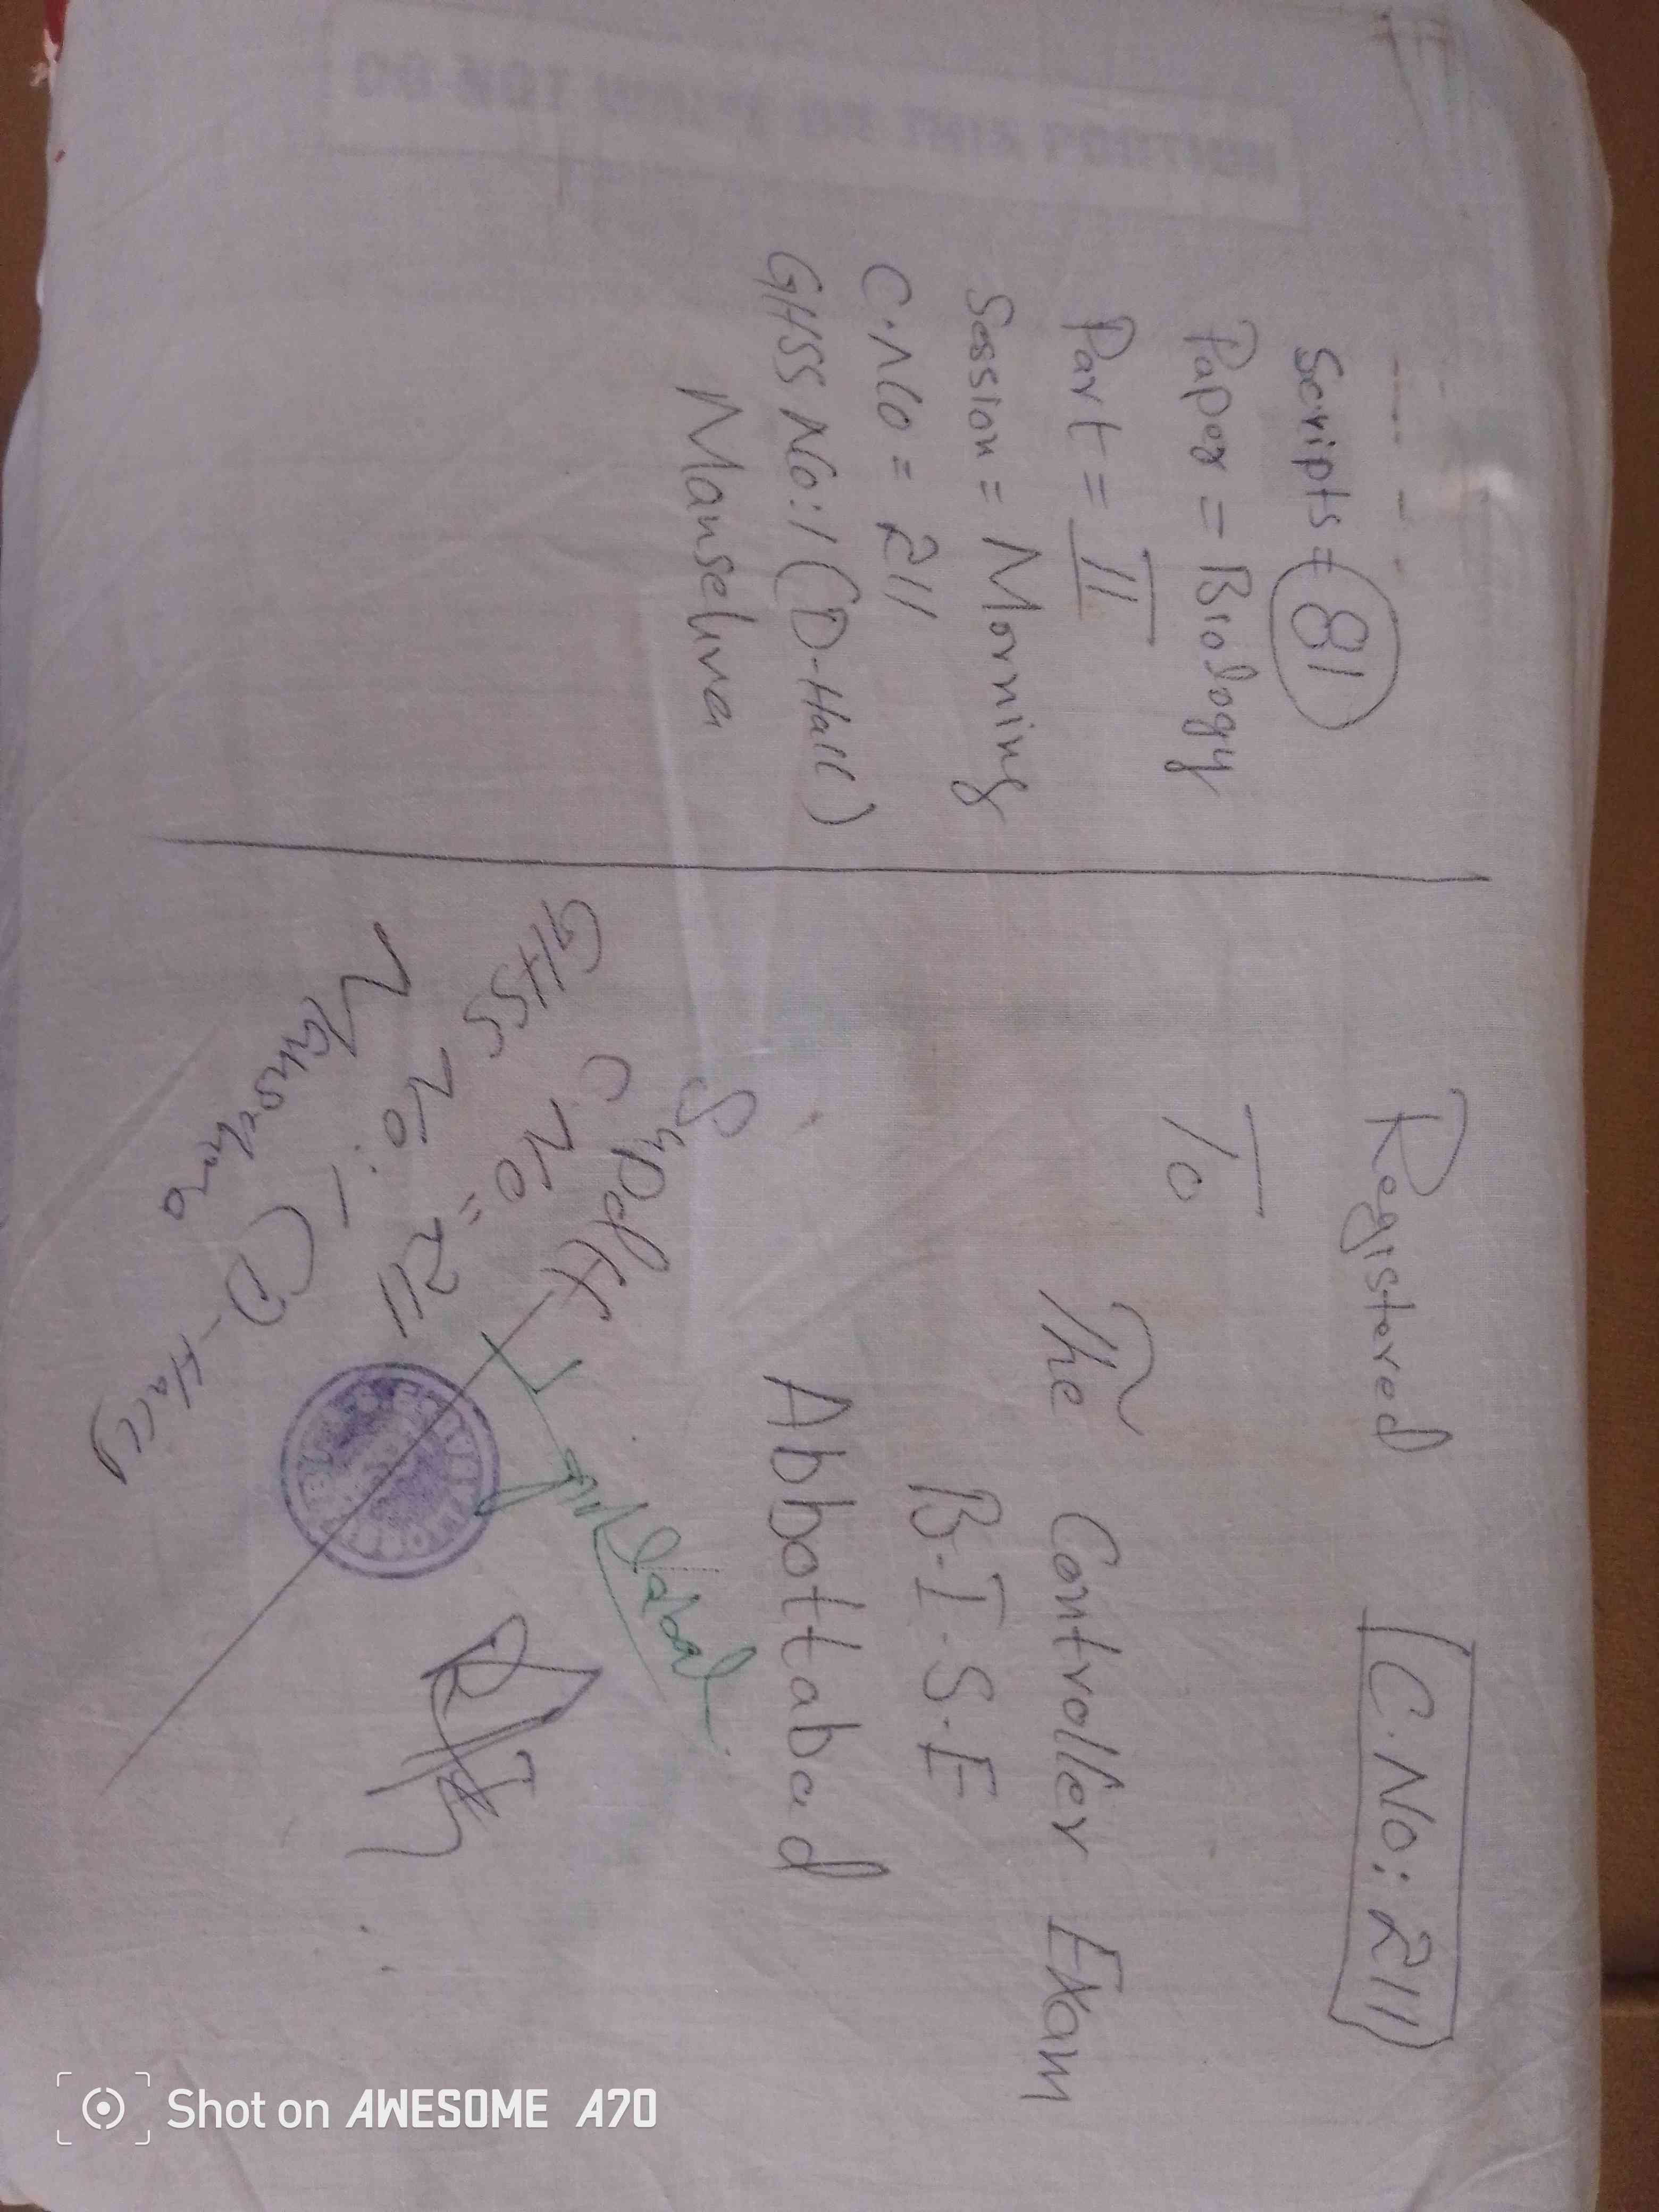 DO NOT WRITE ON THIS PORTION
Scripts = 81
Paper = Biology
Part = II
Session = Morning
C.No = 211
GHSS No:1 (D-Hall)
Mansehra
Registered
C.No: 211
To
The Controller Exam
B.I.S.E
Abbottabad
Supdtt
C No = 211
GHSS No:1 (D-Hall)
Mansehra
Shot on AWESOME A70